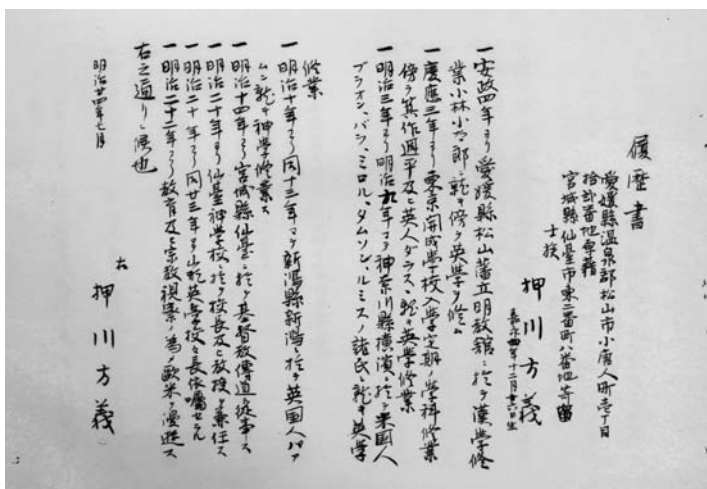 履歴書
愛媛縣温泉郡松山市小唐人町壱丁目
拾弐番地卑籍
宮城縣仙臺市東三番町八番地寄留
士族
押川方義
嘉永四年十二月廿六日生
一 安政四年ヨリ愛媛縣松山藩立明教舘ニ於テ漢学修
業小林小太郎ニ就キ傍ラ英学ヲ修ム
一 慶應三年ヨリ東京開成学校入学定期ノ学科修業
傍ラ箕作 平及ヒ英人ダラスニ就キ英学修業
一 明治三年ヨリ明治九年マテ神奈川縣横濱ニ於テ米国人
ブラオン、バラ、ミロル、タムソン、ルミスノ諸氏ニ就キ英学
修業
一 明治十年ヨリ同十三年マテ新潟縣新潟ニ於テ英国人パア
ムニ就キ神学修業ス
一 明治十四年ヨリ宮城縣仙臺ニ於テ基督教傳道ニ従事ス
一 明治二十年ヨリ仙臺神学校ニ於テ校長及ヒ教授ヲ兼任ス
一 明治二十年ヨリ同廿三年マテ山形英学校々長依嘱セラル
一 明治二十二年ヨリ教育及ヒ宗教視察ノ為メ欧米ヲ漫遊ス
右之通リニ候也
明治廿四年七月
右 押川方義